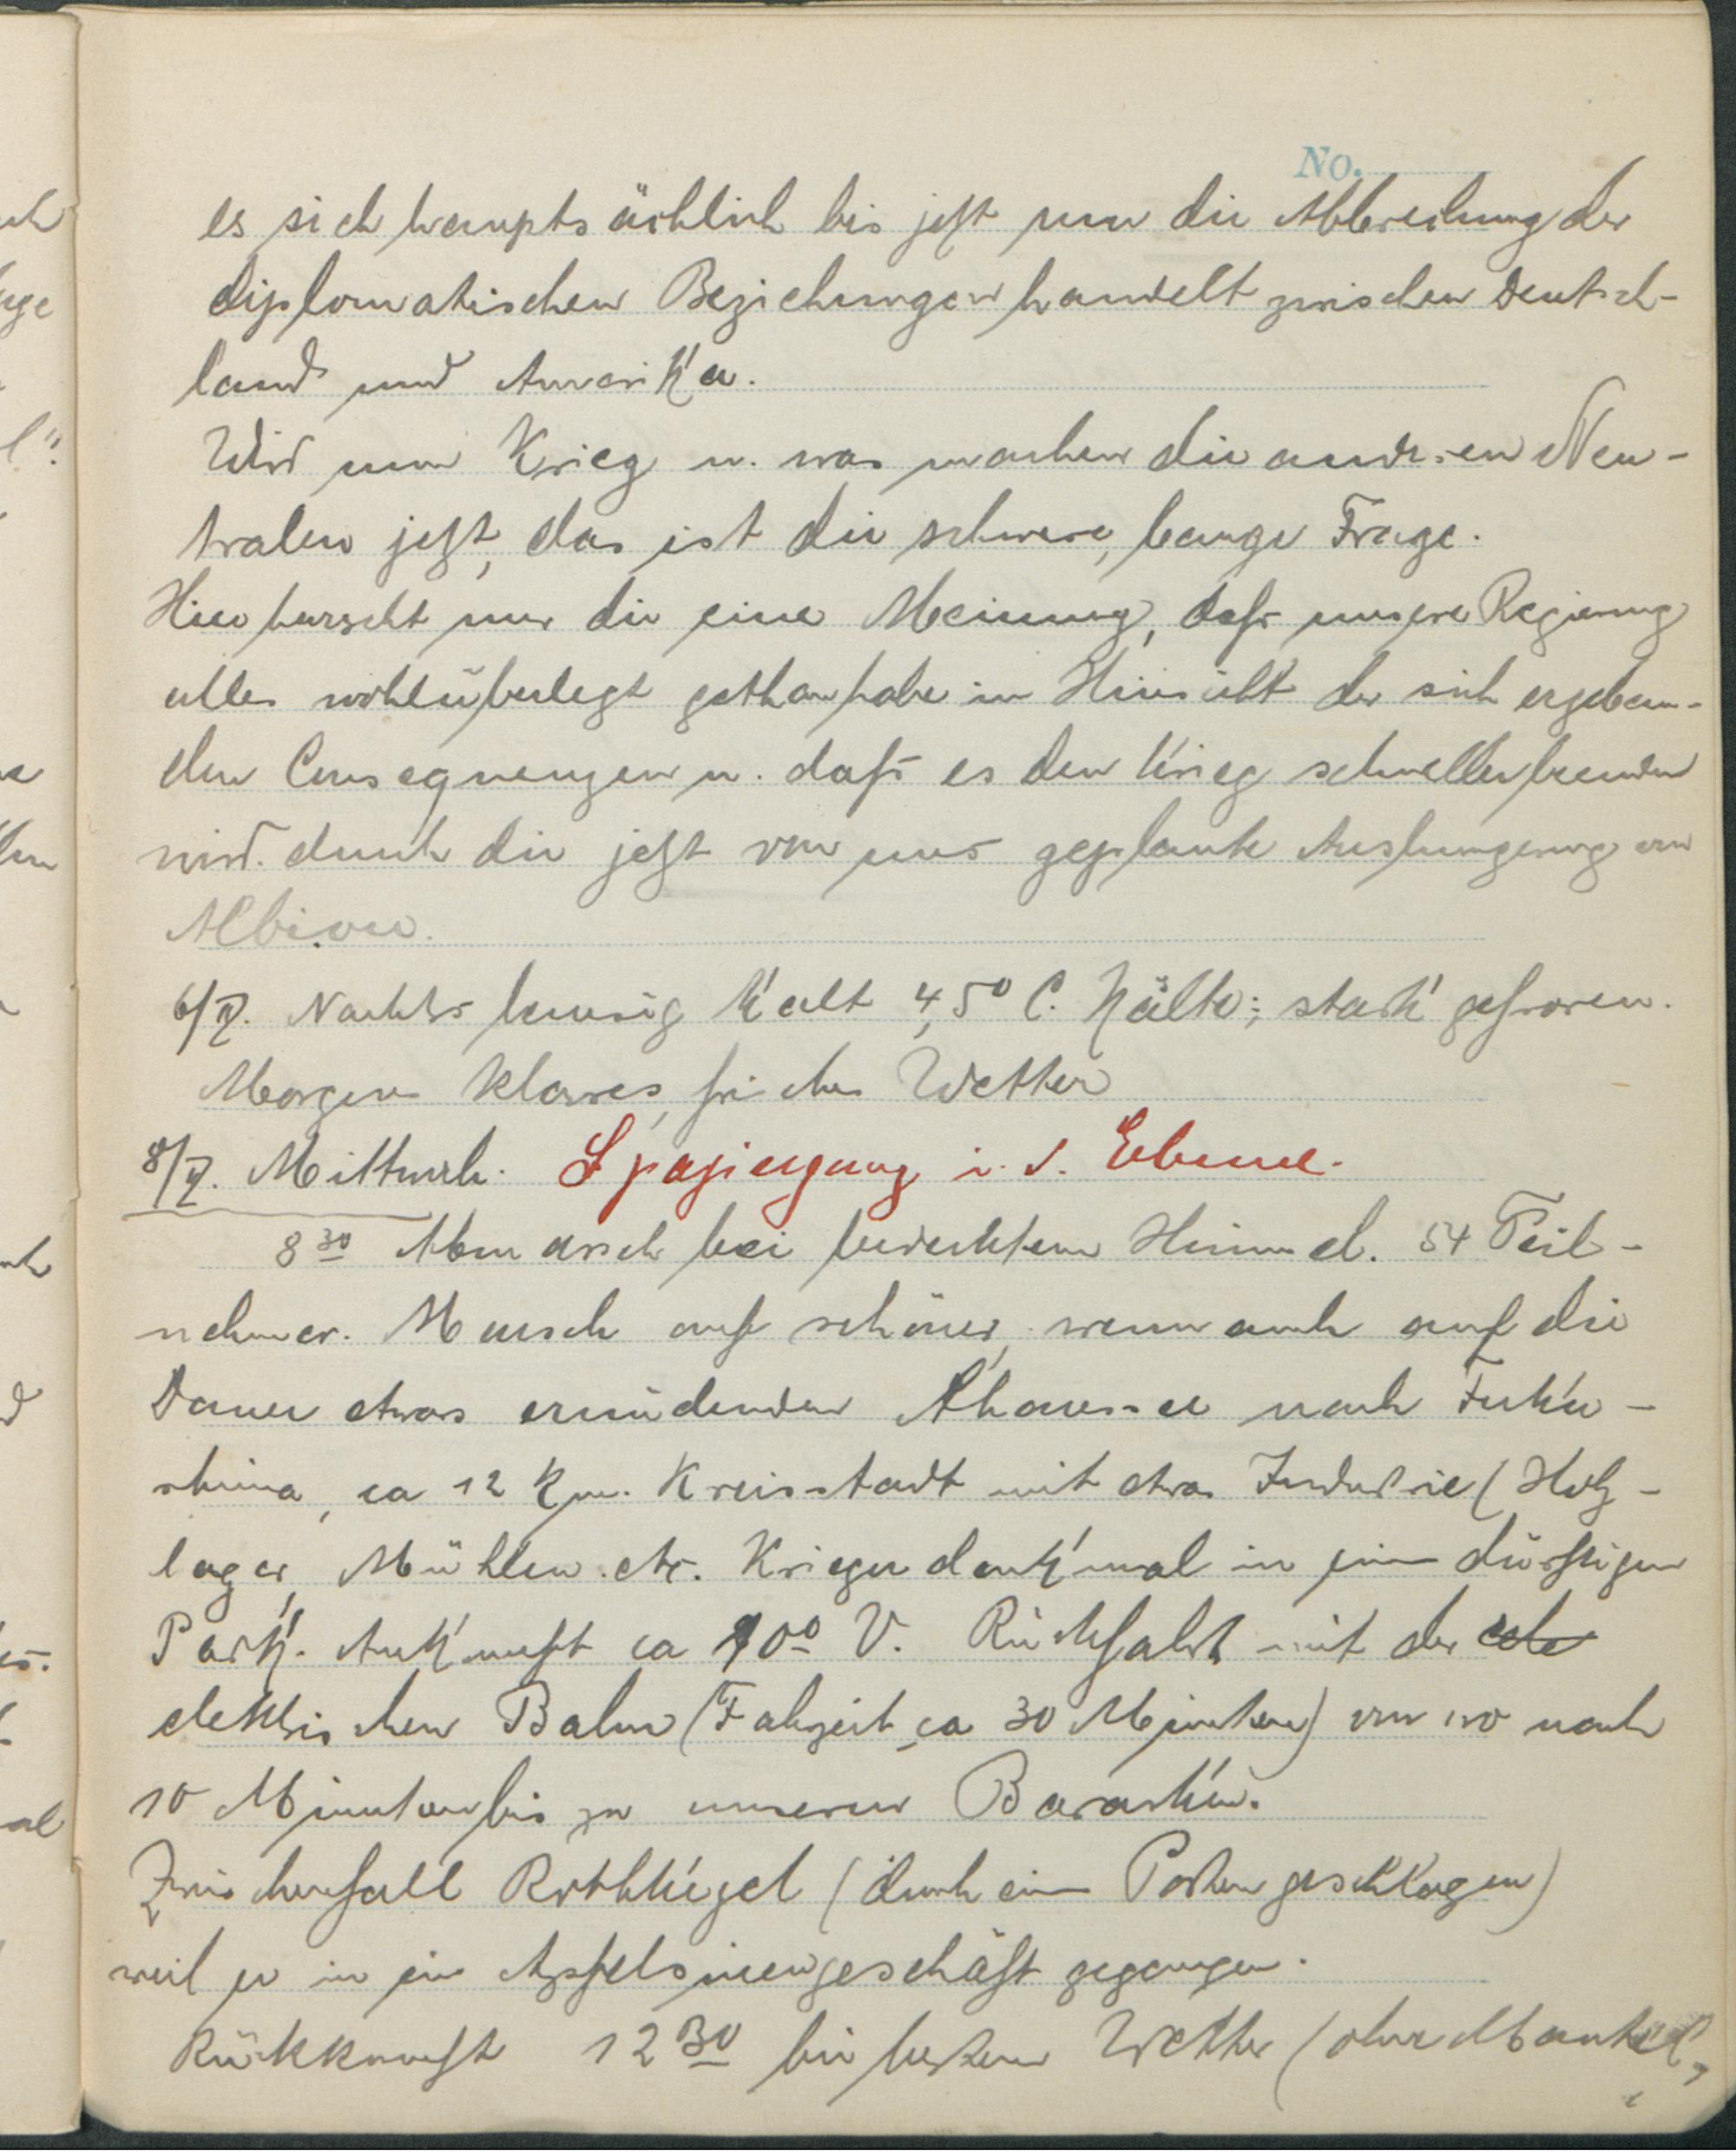 No.
es sich hauptsächlich bis jetzt um die Abbrechung der
diplomatischen Beziehungen handelt zwischen Deutsch-
land und Amerika.
Wird nun Krieg u. was machen die anderen Neu-
tralen jetzt, das ist die schwere, bange Frage.
Hier herrscht nur die eine Meinung, daß unsere Regierung
alles wohlüberlegt gethan habe in Hinsicht der sich ergeben-
den Consequenzen u. daß es den Krieg schneller beenden
wird. durch die jetzt von uns geplante Aushungerung von
Albion.
6/II. Nachts lausig kalt 4,5° C. Kälte; stark gefroren.
Morgens klares, frisches Wetter
8/II. Mittwoch. Spaziergang i. d. Ebene.
8 30 Abmarsch bei bedecktem Himmel. 54 Teil-
nehmer. Marsch auf schöner, wenn auch auf die
Dauer etwas ermüdenden Chaussee nach Fuku-
shima, ca 12 km. Kreisstadt mit etwas Industrie (Holz-
lager, Mühlen etc. Kriegerdenkmal in einem dürftigen
Park. Ankunft ca 10 00 V. Rückfahrt mit der ele
elektrischen Bahn (Fahrzeit ca 30 Minuten) von wo nach
10 Minuten bis zu unseren Baracken.
Zwischenfall Rothkegel (durch einen Posten geschlagen)
weil er in ein Apfelsinengeschäft gegangen.
Rückkunft 12 30 bei bestem Wetter (ohne Mantel,